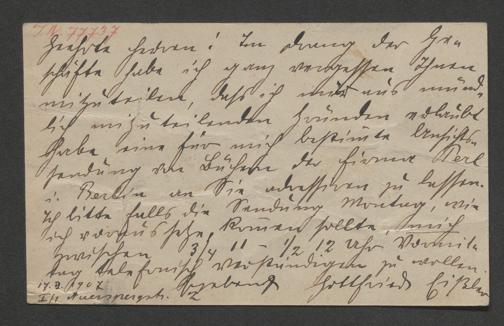 I.N. 77737
Geehrte Herren! Im Drang der Ge-
schäfte habe ich ganz vergessen Ihnen
mitzuteilen, dass ich mir aus münd-
lich mitzuteilenden Gründen erlaubt
habe eine für mich bestimte Ansichts-
sendung von Büchern der Firma Perl
i. Berlin an Sie adressiren zu lassen.
Ich bitte falls die Sendung Montag, wie
ich voraussehe, komen sollte, mich
zwischen 3/4 11 - 1/2 12 Uhr Vormit-
tag telefonisch verständigen zu wollen.
Ergebenst Gottfried Eißler
17.3.1907
I/1 Auerspergstr. 2